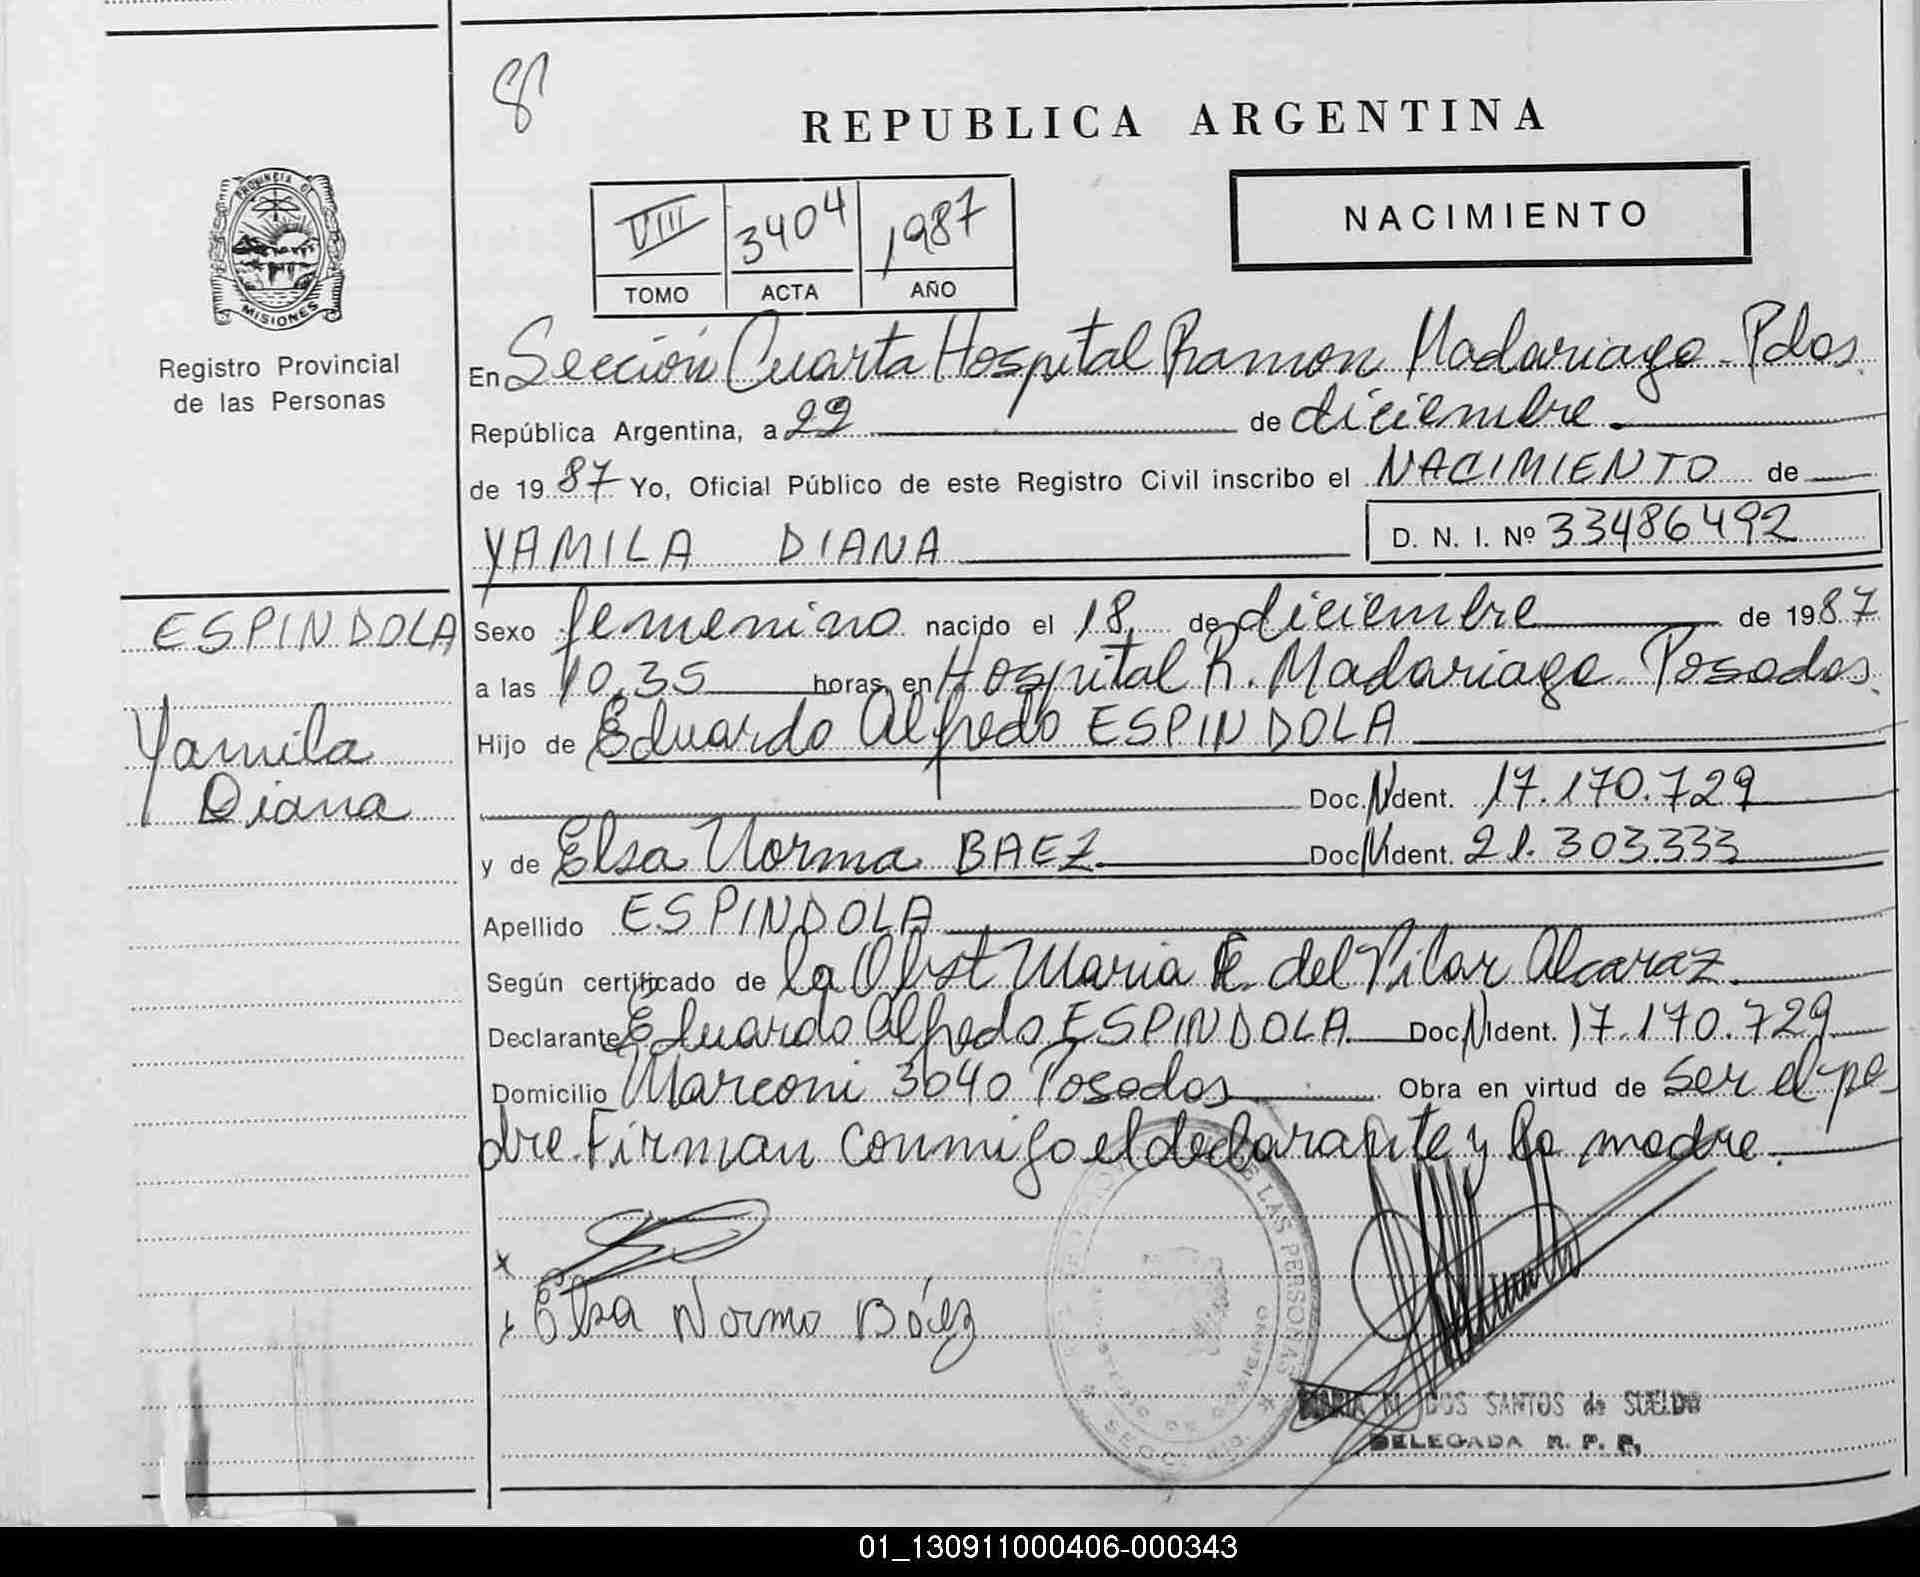 8
REPUBLICA ARGENTINA
PROVINCIA DE
MISIONES
Registro Provincial
de las Personas
VIII 3404 1987
TOMO ACTA AÑO
NACIMIENTO
En Sección Cuarta Hospital Ramon Madariaga - Pdas.
República Argentina, a 22 de diciembre.
de 1987 Yo, Oficial Público de este Registro Civil inscribo el NACIMIENTO de
YAMILA DIANA D. N. I. Nº 33486492
ESPINDOLA
Yamila
Diana
Sexo femenino nacido el 18 de diciembre de 1987
a las 10,35 horas, en Hospital R. Madariaga Posadas.
Hijo de Eduardo Alfredo ESPINDOLA
Doc. N Ident. 17.170.729
y de Elsa Norma BAEZ Doc N Ident. 21.303.333
Apellido ESPINDOLA
Según certificado de la Obst Maria E. del Pilar Alcaraz.
Declarante Eduardo Alfredo ESPINDOLA Doc N Ident. 17.170.729
Domicilio Marconi 3040 Posadas Obra en virtud de ser el pa-
dre. Firman conmigo el declarante y la madre.
x
x Elsa Norma Báez
DE LAS PERSONAS
MARIA M. DOS SANTOS de SUELDO
DELEGADA R. P. P.
01_130911000406-000343